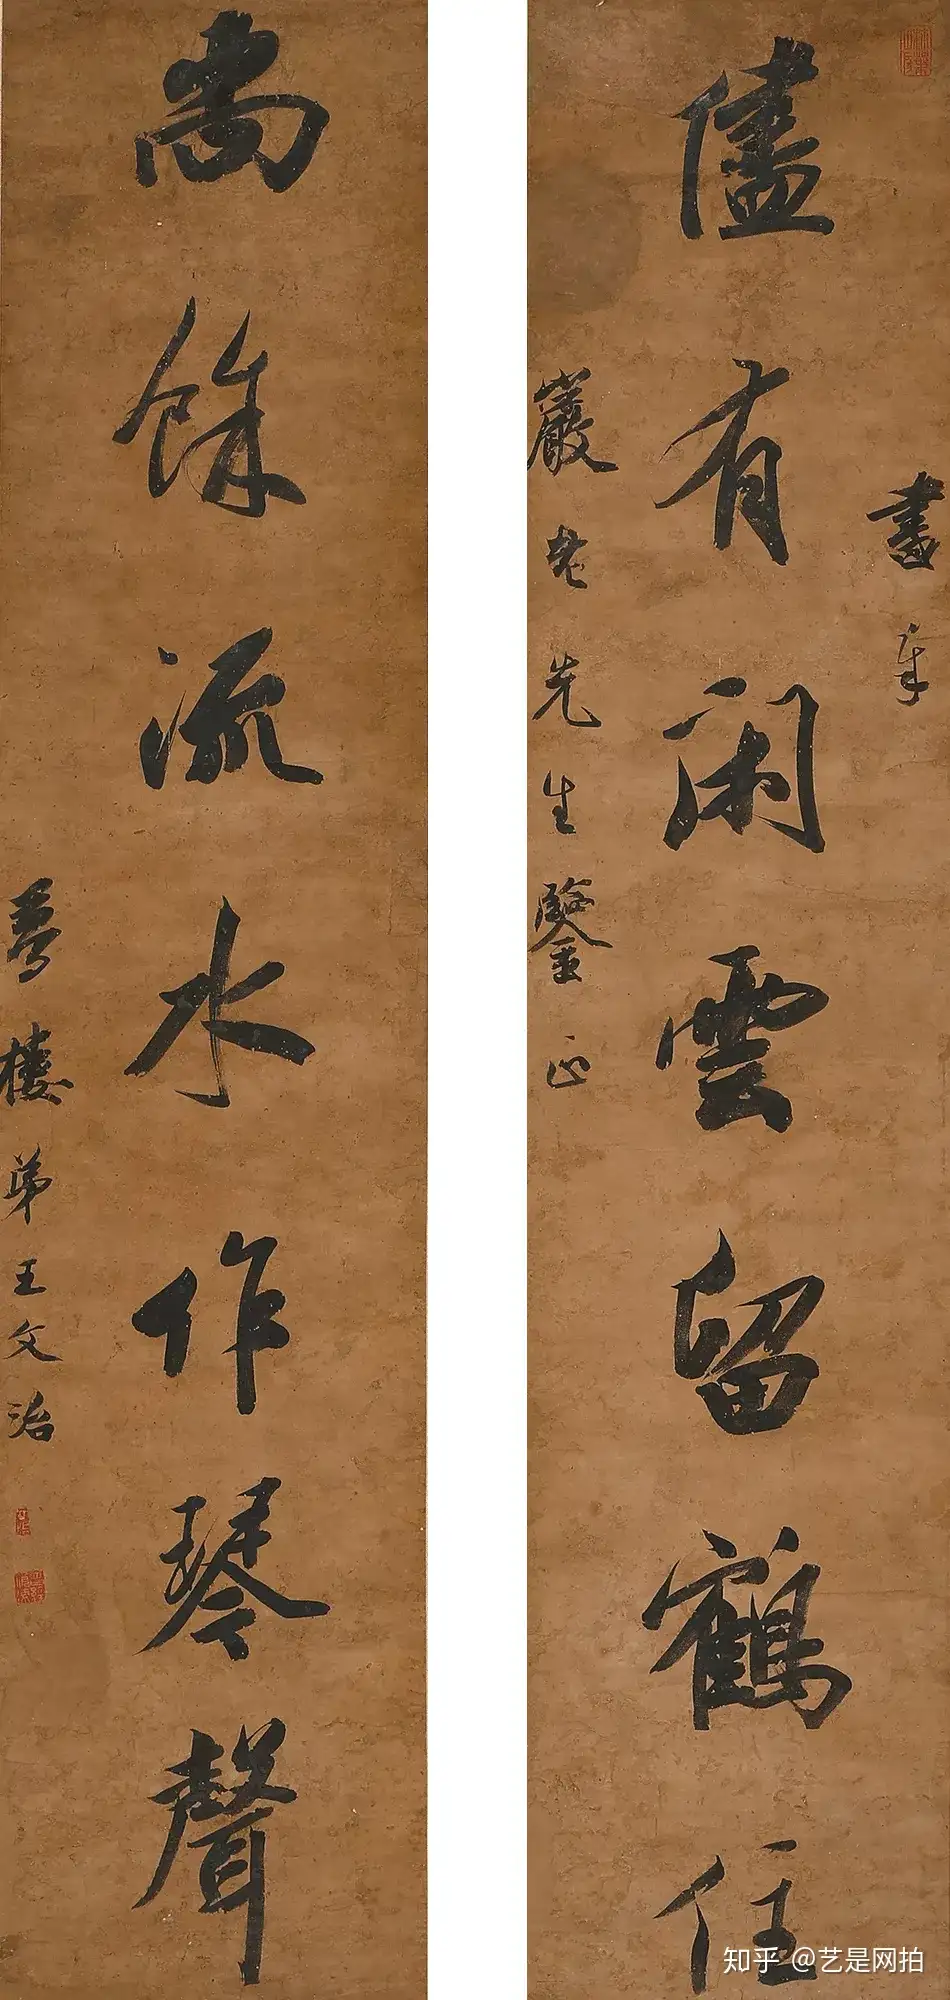 書奉
儘有閑雲留鶴住
巖老先生鑒正
尚餘流水作琴聲
夢樓弟王文治
知乎 @艺是网拍